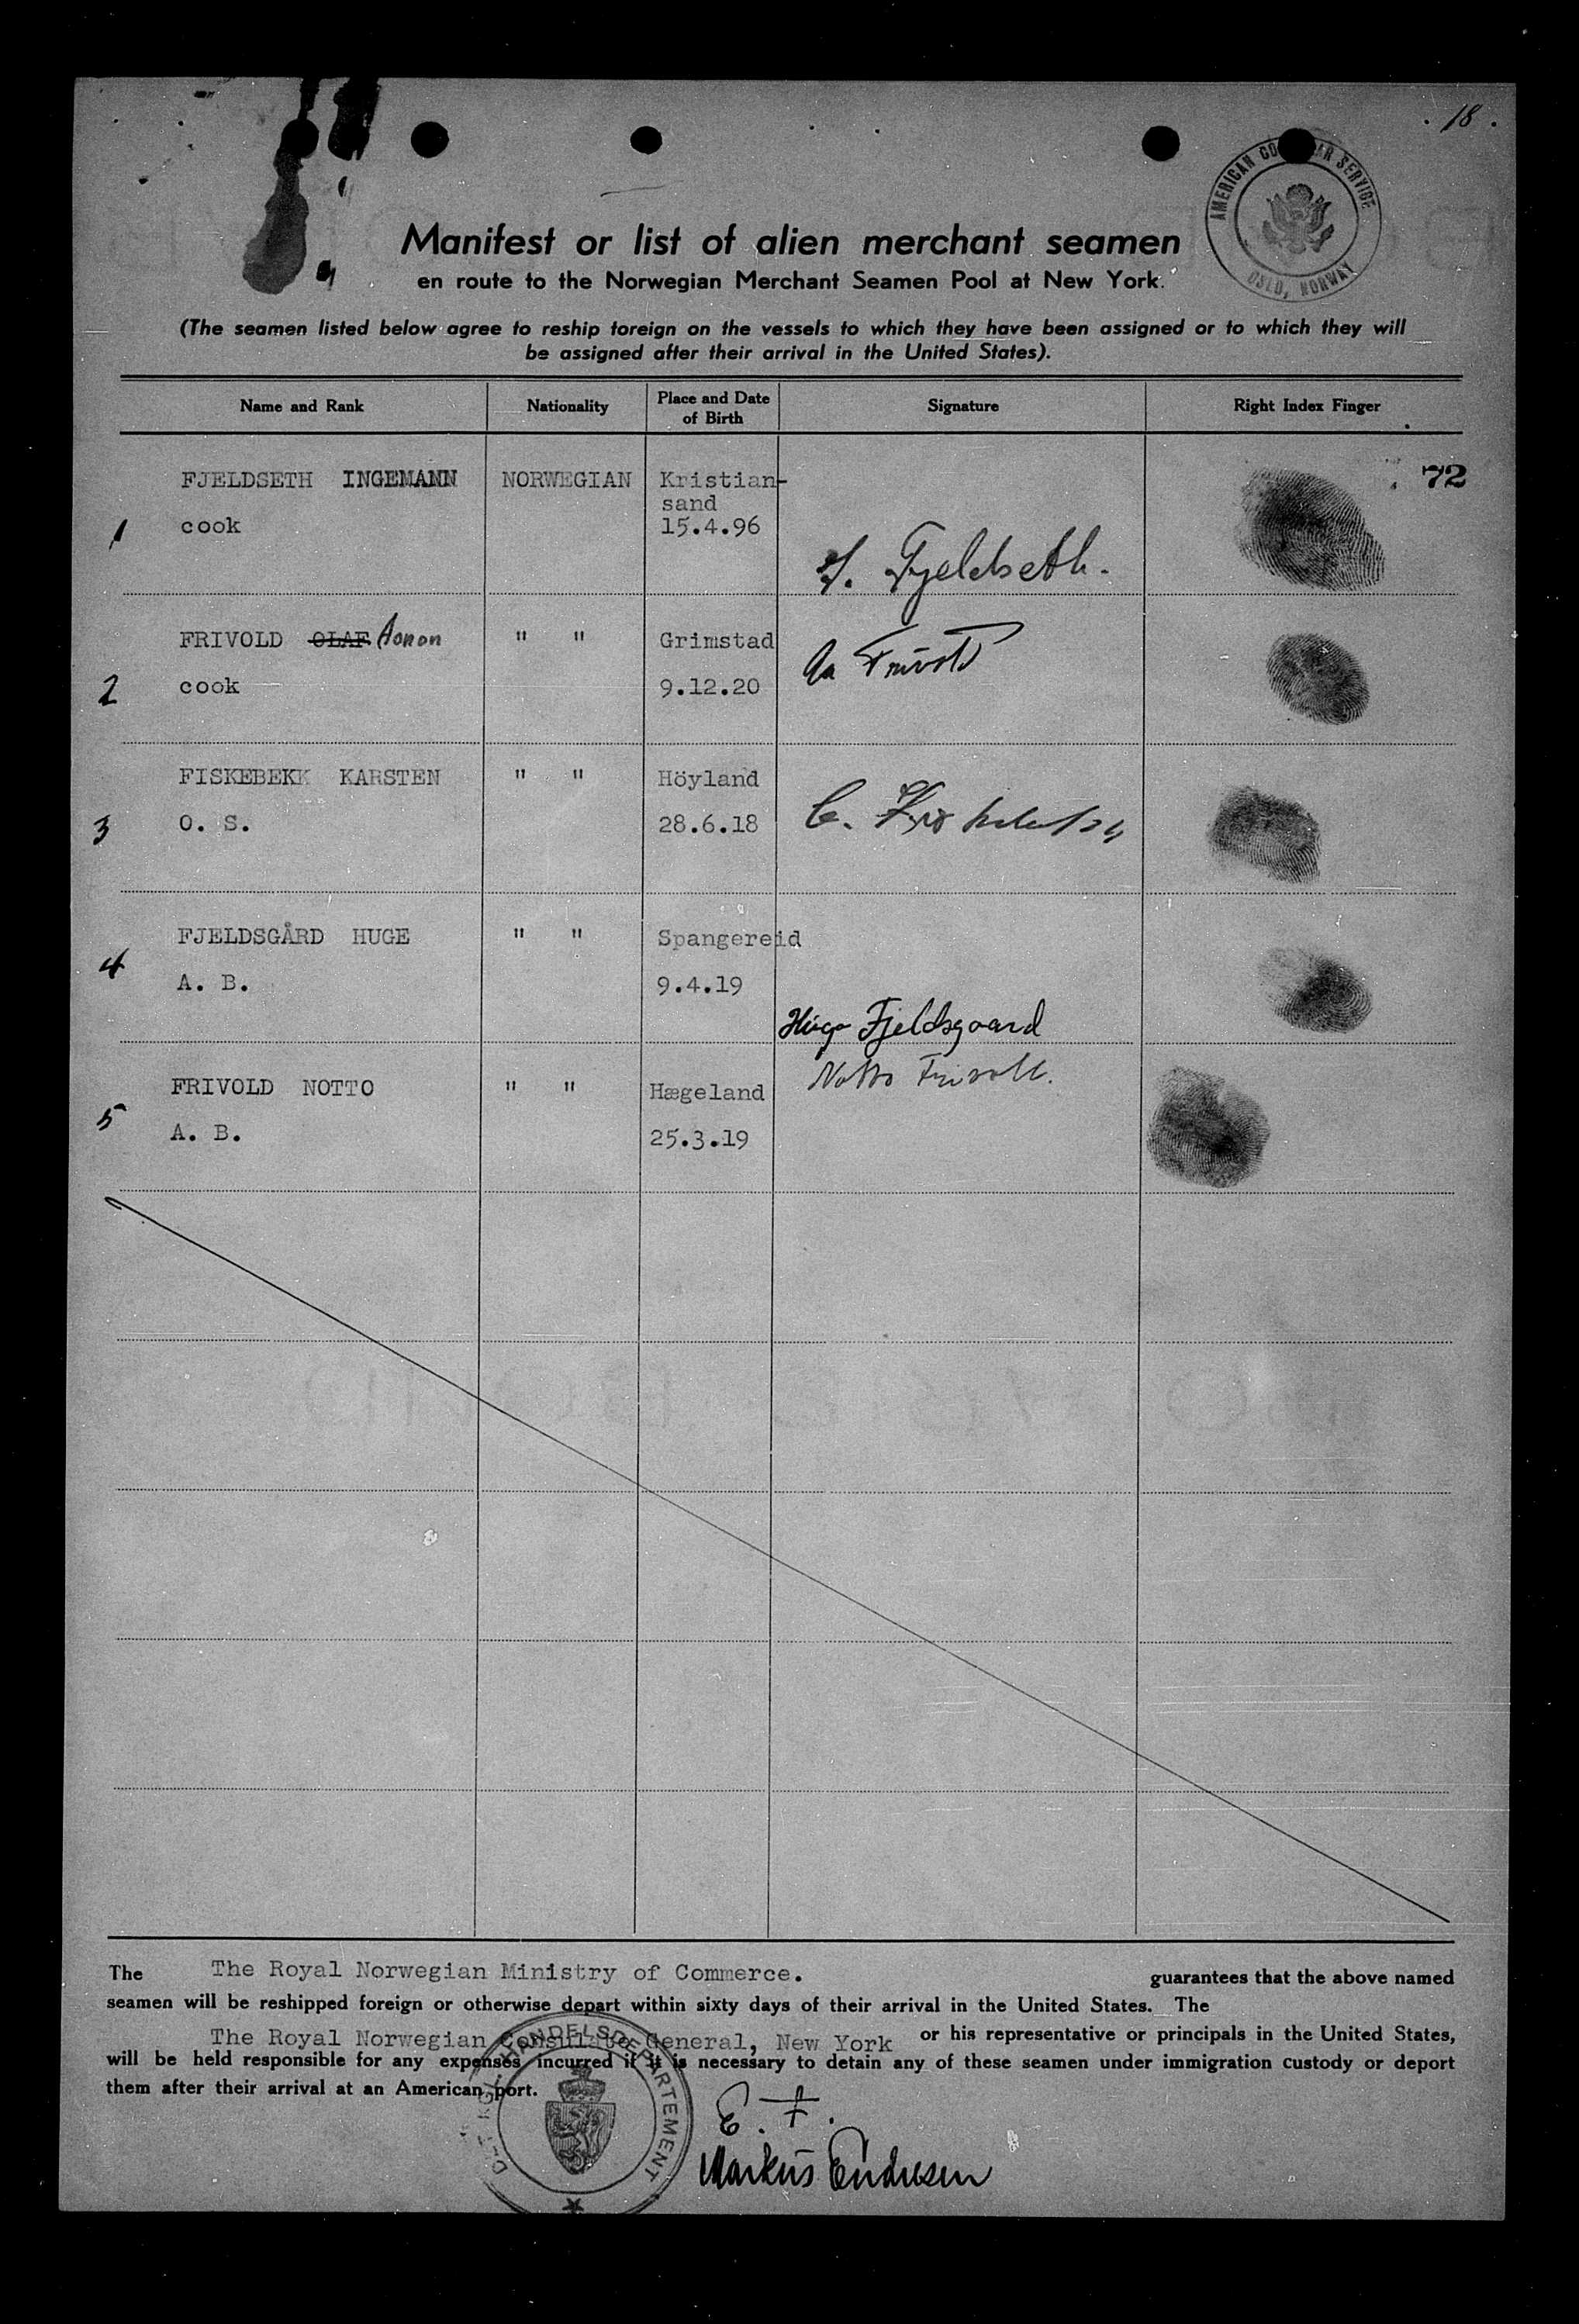 18.
AMERICAN CO AR SERVICE
OSLO, NORWAY
Manifest or list of alien merchant seamen
en route to the Norwegian Merchant Seamen Pool at New York.
(The seamen listed below agree to reship foreign on the vessels to which they have been assigned or to which they will
be assigned after their arrival in the United States).
Name and Rank Nationality Place and Date of Birth Signature Right Index Finger
72
1 FJELDSETH INGEMANN NORWEGIAN Kristian-
sand
cook 15.4.96
I. Fjeldseth.
2 FRIVOLD OLAF Aanon " " Grimstad Aa Frivold
cook 9.12.20
3 FISKEBEKK KARSTEN " " Höyland
O. S. 28.6.18
4 FJELDSGÅRD HUGE " " Spangereid
A. B. 9.4.19
Hugo Fjeldsgaard
5 FRIVOLD NOTTO " " Hægeland Notto Frivold.
A. B. 25.3.19
The The Royal Norwegian Ministry of Commerce. guarantees that the above named
seamen will be reshipped foreign or otherwise depart within sixty days of their arrival in the United States. The
The Royal Norwegian Consulate General, New York or his representative or principals in the United States,
will be held responsible for any expenses incurred if it is necessary to detain any of these seamen under immigration custody or deport
them after their arrival at an American port.
DET KGL. HANDELSDEPARTEMENT
E. F.
Markus Endresen